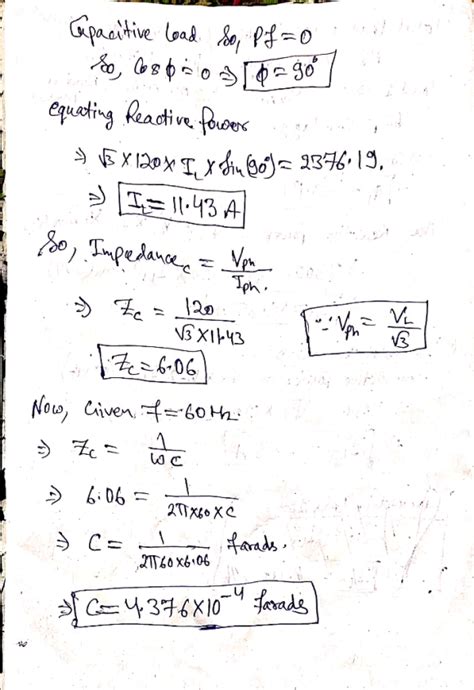 Capacitive load So, Pf = 0
So, Cos φ = 0 ⇒ φ = 90°
equating Reactive Power
⇒ √3 × 120 × I_L × Sin(90°) = 2376.19.
⇒ I_L = 11.43 A
So, Impedance_c = V_ph / I_ph.
⇒ Z_c = 120 / √3 × 11.43
∵ V_ph = V_L / √3
Z_c = 6.06
Now, Given f = 60 Hz.
⇒ Z_c = 1 / ωC
⇒ 6.06 = 1 / 2π×60×C
⇒ C = 1 / 2π60×6.06 farads.
⇒ C = 4.376×10⁻⁴ farads